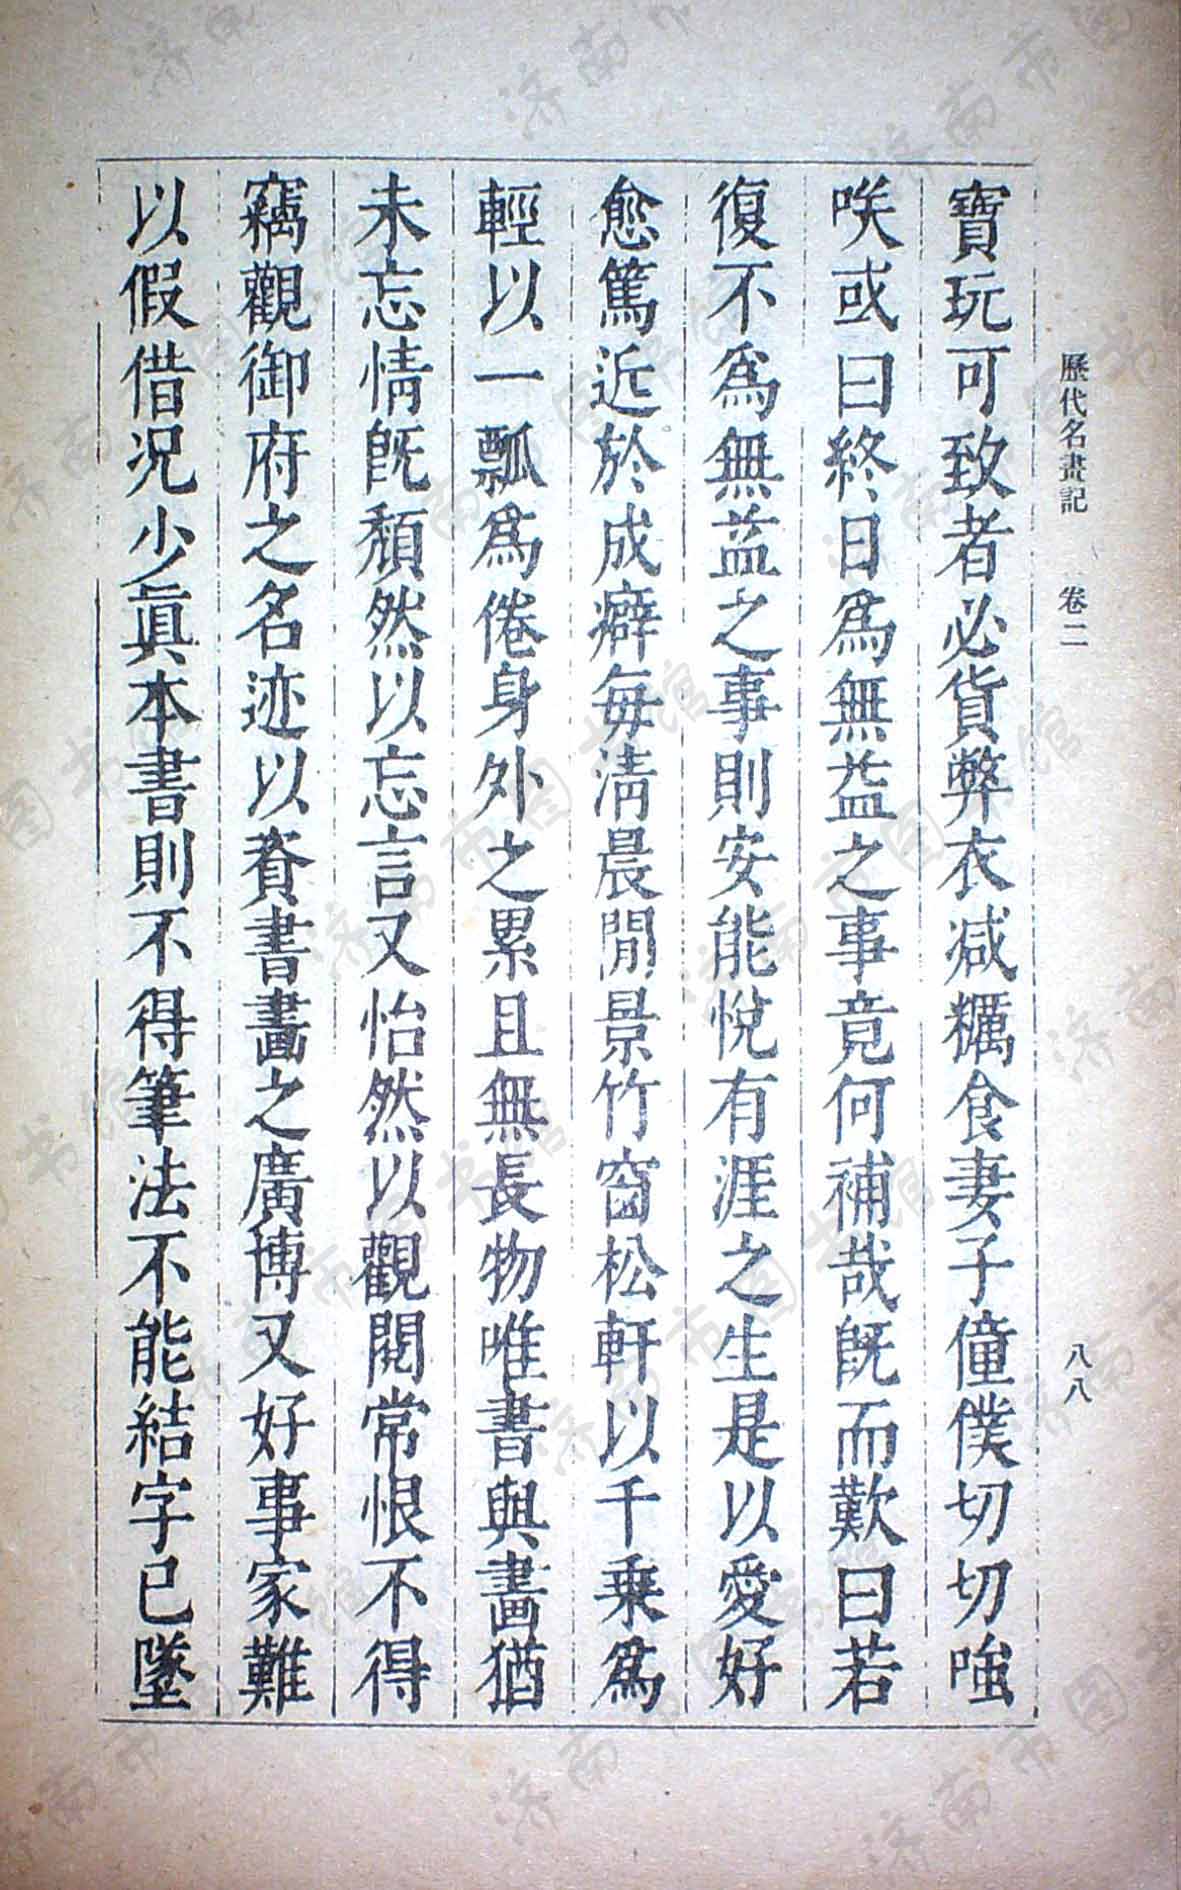 歷代名畫記 卷二 八八
寶玩可致者必貨弊衣减糲食妻子僮僕切切嗤
咲或曰終日爲無益之事竟何補哉旣而歎曰若
復不爲無益之事則安能悅有涯之生是以愛好
愈篤近於成癖每淸晨閒景竹窗松軒以千乗爲
輕以一瓢爲倦身外之累且無長物唯書與畫猶
未忘情旣頹然以忘言又怡然以觀閱常恨不得
竊觀御府之名迹以資書畫之廣博又好事家難
以假借况少眞本書則不得筆法不能結字已墜
济南市图书馆